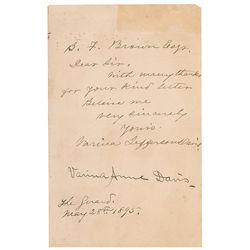 S. F. Brown Esqr.
Dear Sir,
With many thanks
for your kind letter
Believe me
very sincerely
yours
Varina Jefferson Davis
Varina Anne Davis
The Gerard.
May 28th 1895.